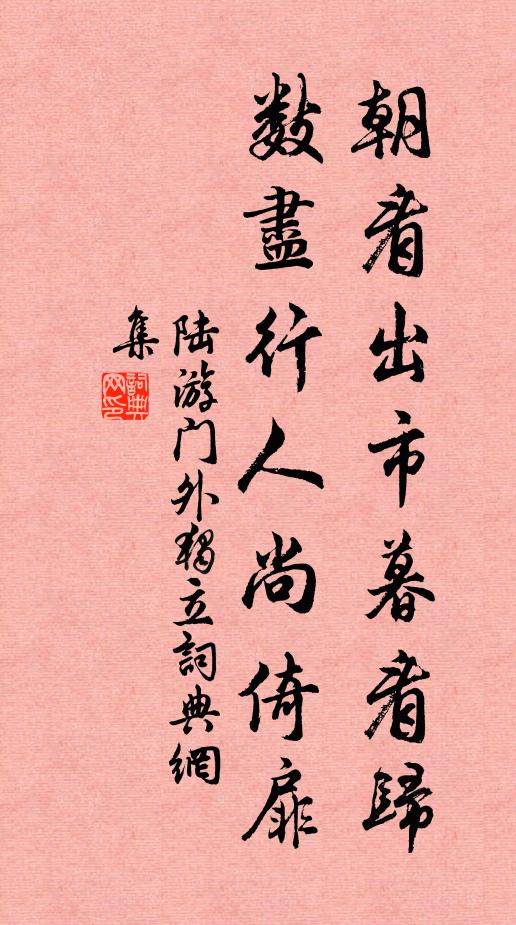 朝看出市暮看歸
數盡行人尚倚扉
陆游门外獨立詞典網
集
詞典网印